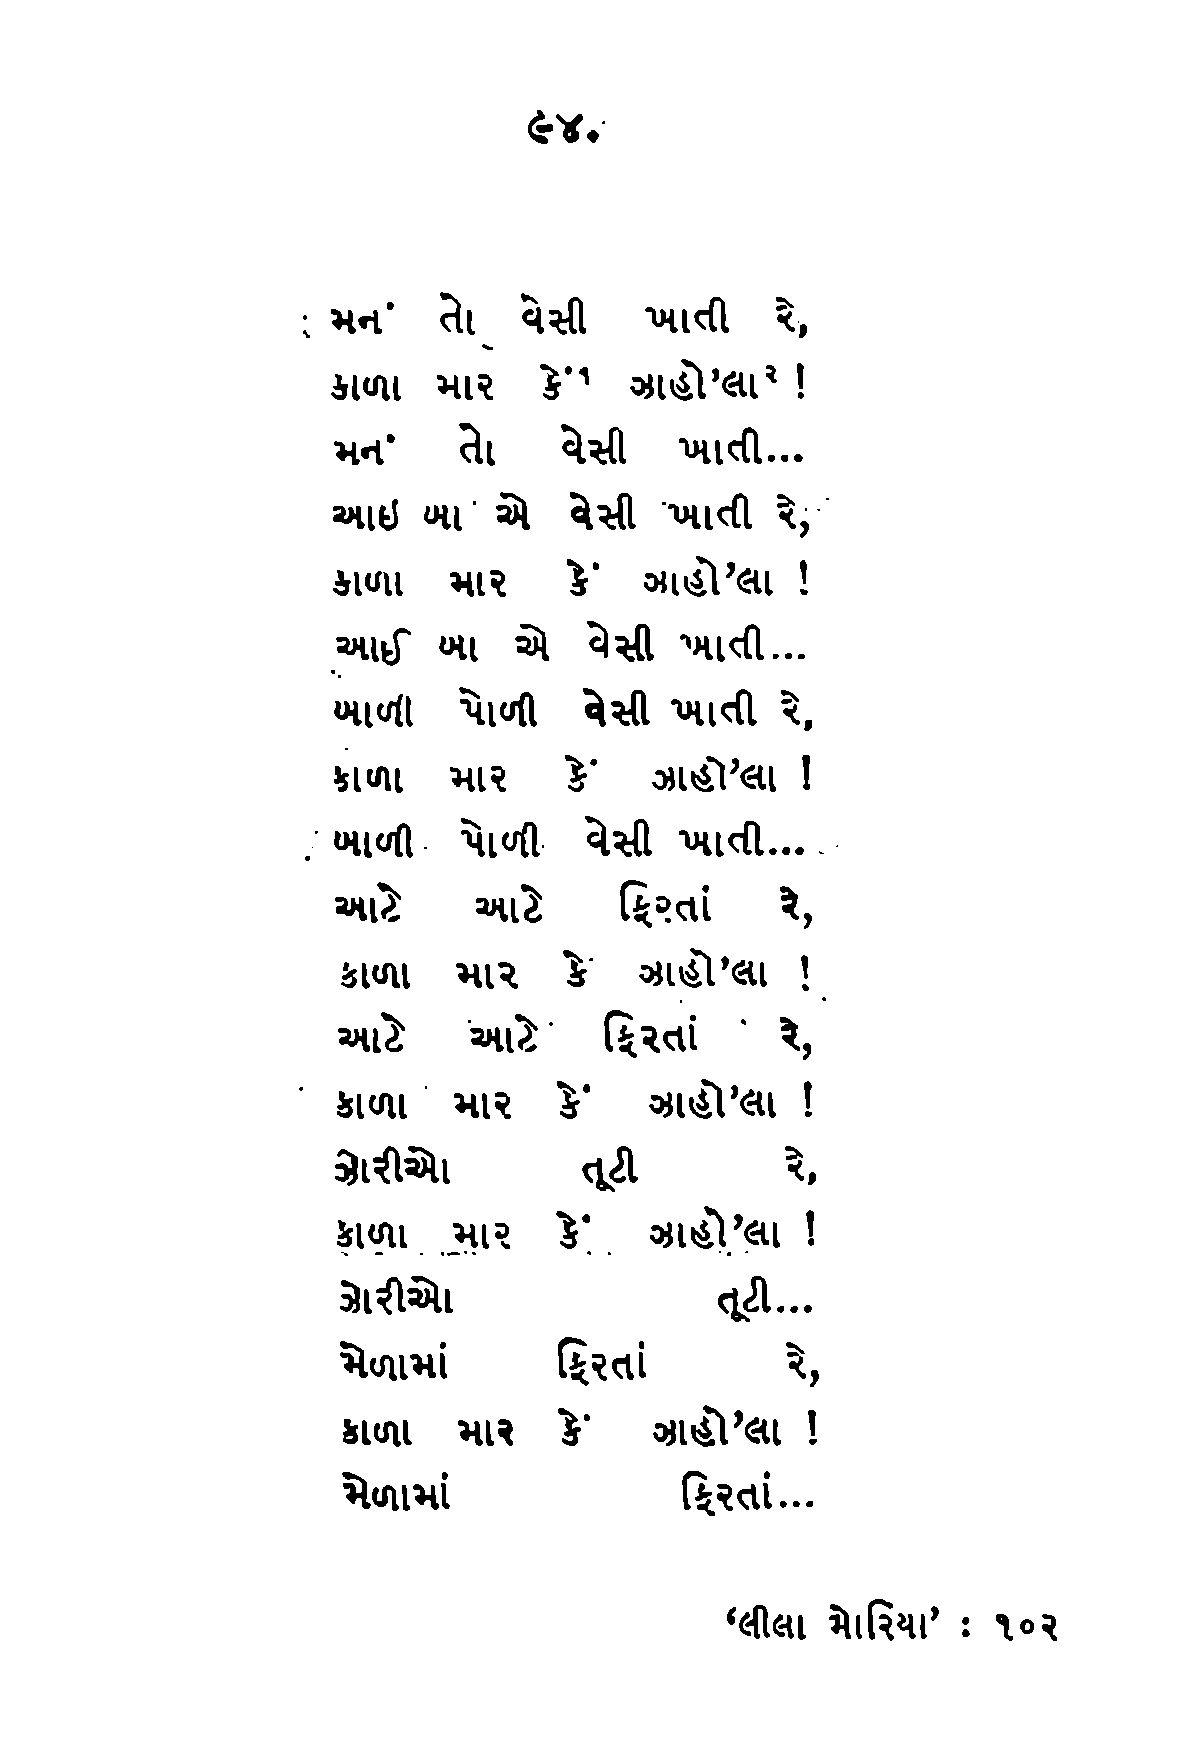 ૯૪.
મનં તો વેસી ખાતી રે,
કાળા માર કેં૧ ઝાહો’લા૨ !
મનં તો વેસી ખાતી...
આઇ બા એ વેસી ખાતી રે,
કાળા માર કેં ઝાહો’લા !
આઈ બા એ વેસી ખાતી...
બાળી પોળી વેસી ખાતી રે,
કાળા માર કેં ઝાહો’લા !
બાળી પોળી વેસી ખાતી...
આટે આટે ફિરતાં રે,
કાળા માર કેં ઝાહો’લા !
આટે આટે ફિરતાં રે,
કાળા માર કેં ઝાહો’લા !
ઝોરીઓ તૂટી રે,
કાળા માર કેં ઝાહો’લા !
ઝોરીઓ તૂટી...
મેળામાં ફિરતાં રે,
કાળા માર કેં ઝાહો’લા !
મેળામાં ફિરતાં...
‘લીલા મોરિયા’ : ૧૦૨